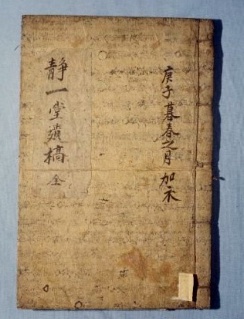 庚子暮春之月 加衣
靜一堂遺槁 全